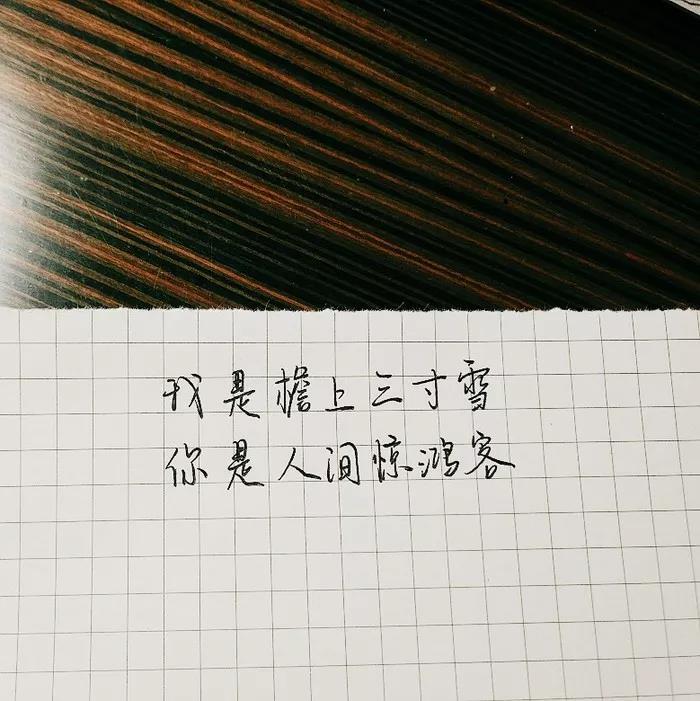 我是檐上三寸雪
你是人间惊鸿客